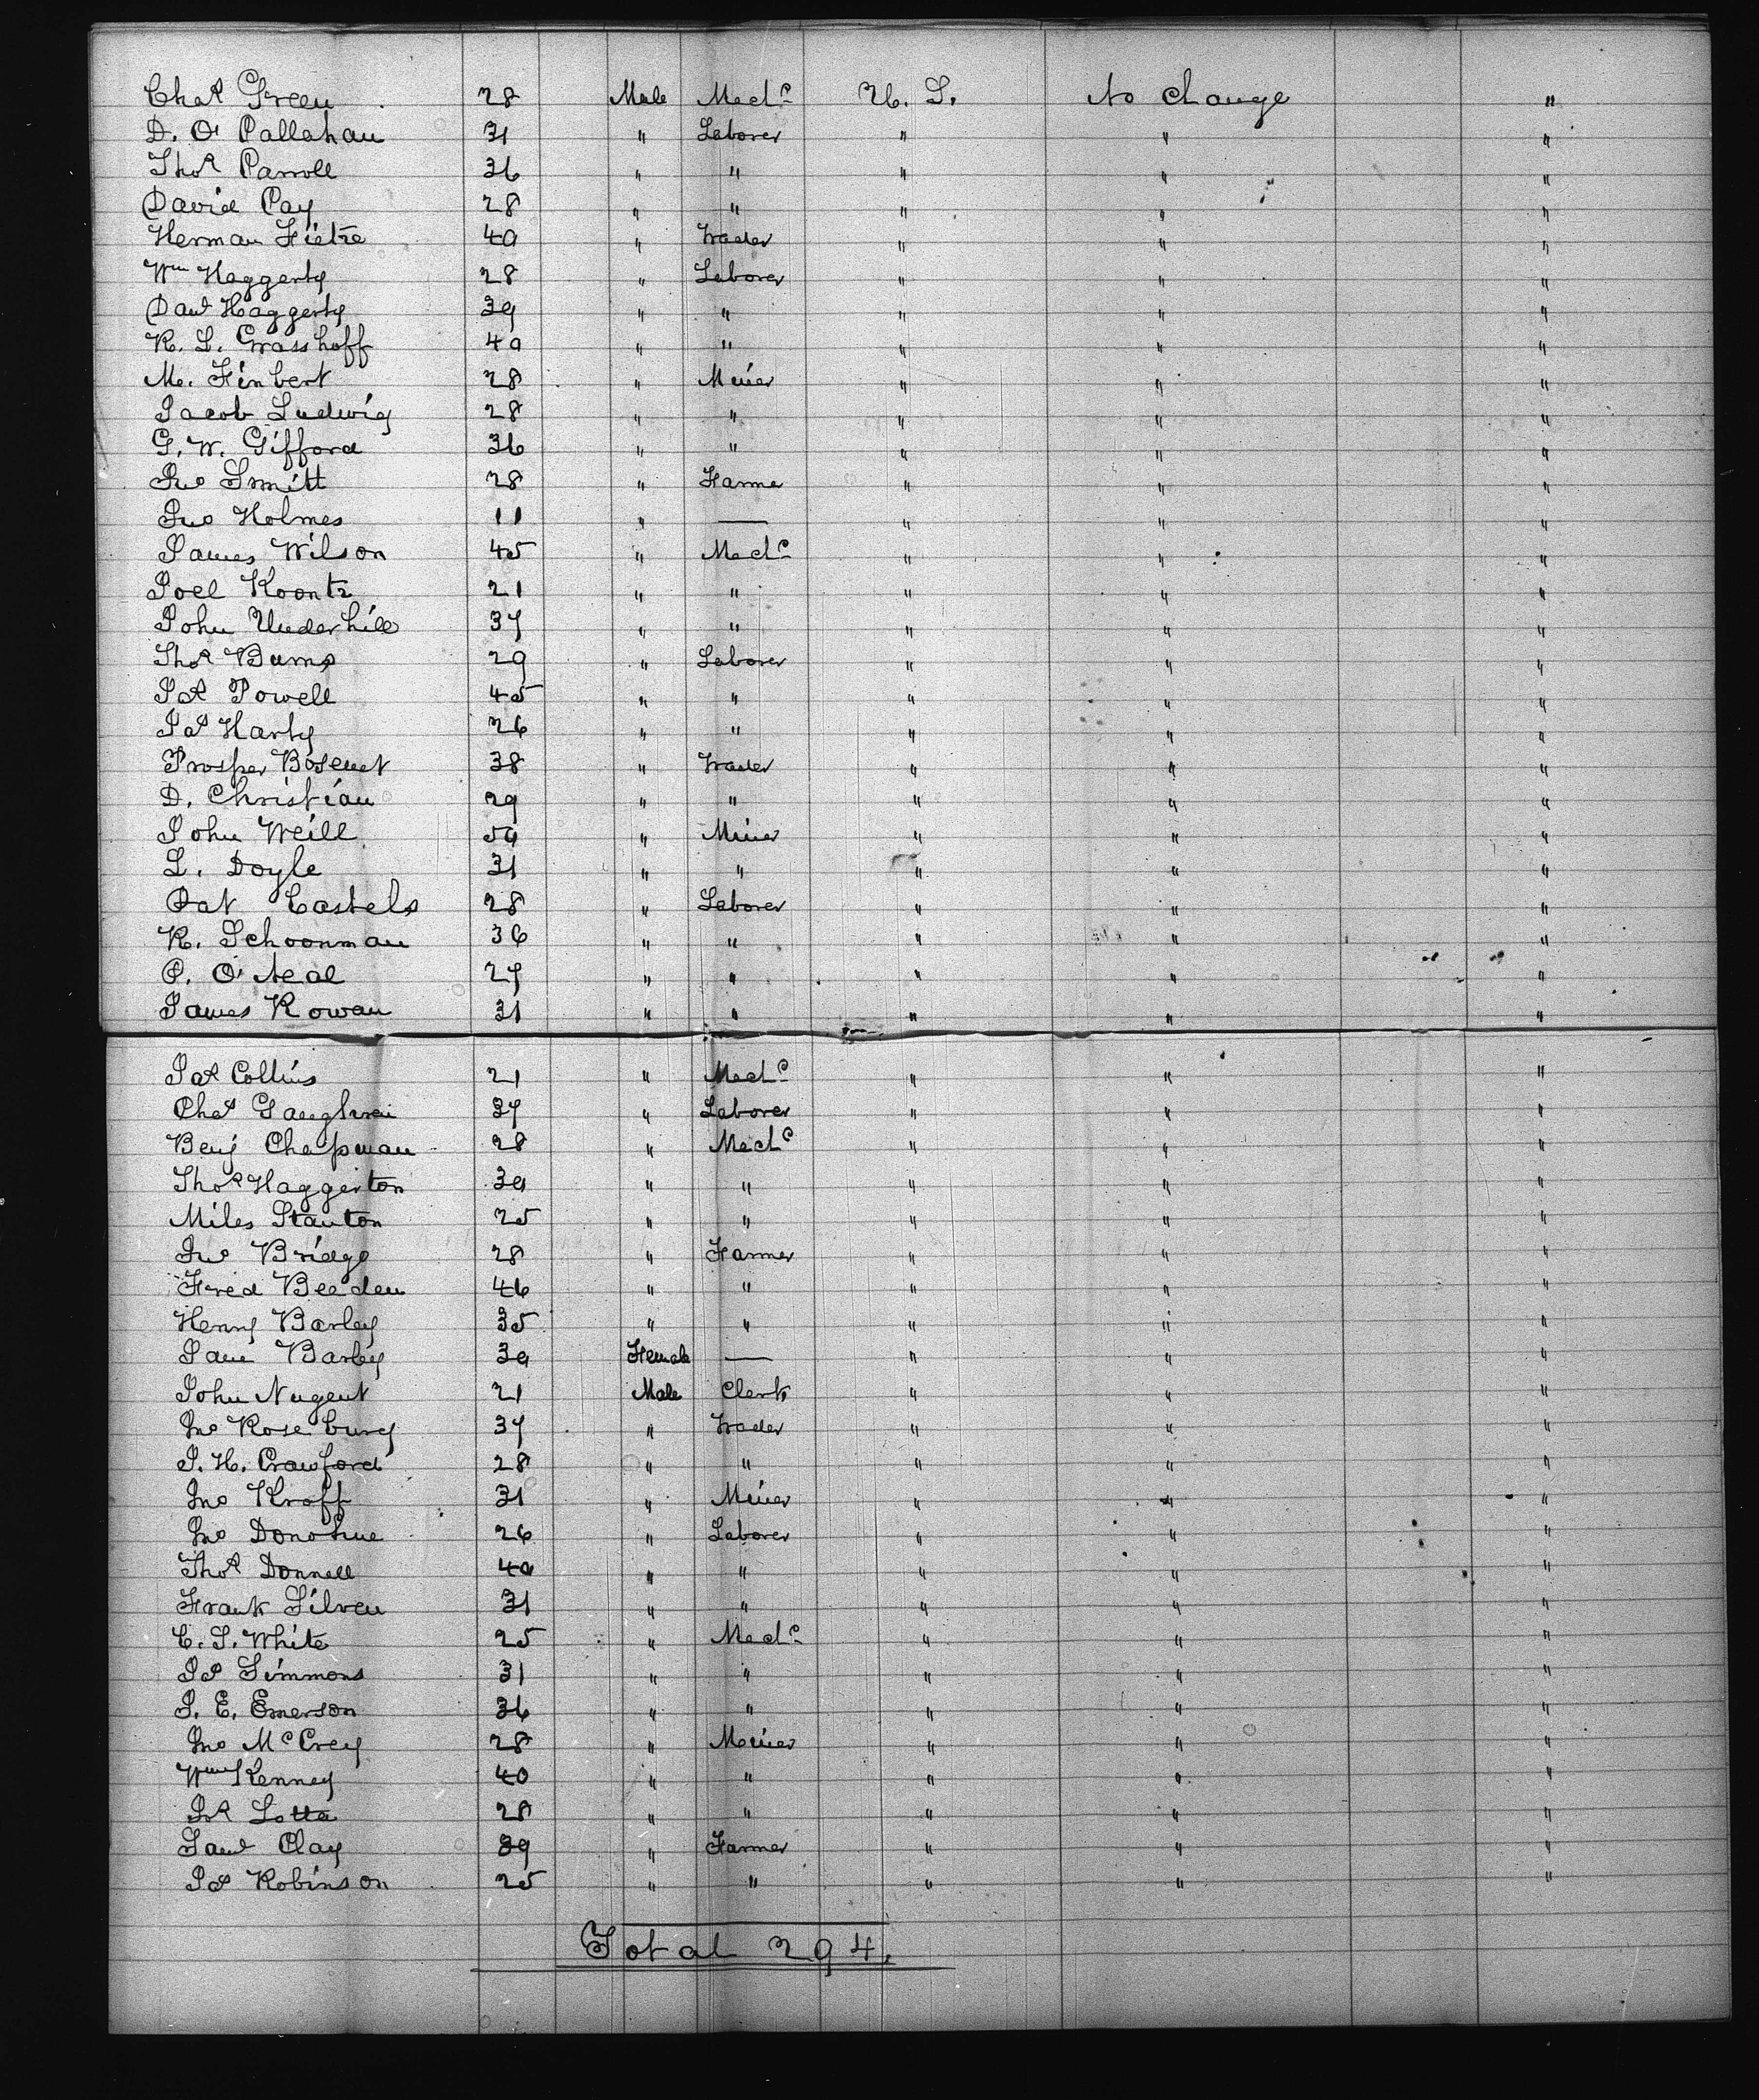 Chas Green 28 Male Mechc U. S. No Change "
D. O' Callahan 31 " Laborer " " "
Thos Carroll 36 " " " " "
David Cay 28 " " " " "
Herman Fietze 40 " Trader " " "
Wm Haggerty 28 " Laborer " " "
Danl Haggerty 39 " " " " "
K. L. Grasshoff 40 " " " " "
M. Finbert 28 " Miner " " "
Jacob Ludwig 28 " " " " "
G. W. Gifford 36 " " " " "
Jno Smitt 28 " Farmer " " "
Jno Holmes 11 " — " " "
James Wilson 45 " Mechc " " "
Joel Koontz 21 " " " " "
John Underhill 37 " " " " "
Thos Burns 29 " Laborer " " "
Jas Powell 45 " " " " "
Jas Harty 26 " " " " "
Prosper Bosenet 38 " Trader " " "
D. Christian 29 " " " " "
John Weill 50 " Miner " " "
L. Doyle 31 " " " " "
Pat Castels 28 " Laborer " " "
K. Schoonman 36 " " " " "
P. O' Neal 27 " " " " "
James Rowan 31 " " " " "
Jas Collins 21 " Mechc " " "
Chas 37 " Laborer " " "
Benj Chapman 28 " Mechc " " "
Thos Haggerton 30 " " " " "
Miles Stanton 25 " " " " "
Jno Bridge 28 " Farmer " " "
Fred Beeden 46 " " " " "
Henry Barley 35 " " " " "
Jane Barley 30 Female — " " "
John Nugent 21 Male Clerk " " "
Jno Roseburg 37 " Trader " " "
J. H. Crawford 28 " " " " "
Jno Kroff 31 " Miner " " "
Jno Donohue 26 " Laborer " " "
Thos Donnell 40 " " " " "
Frank Silven 31 " " " " "
C. S. White 25 " Mechc " " "
Js Simmons 31 " " " " "
J. E. Emerson 36 " " " " "
Jno McCrey 28 " Miner " " "
Wm Kenney 40 " " " " "
Js Lotta 28 " " " " "
Saml Clay 39 " Farmer " " "
Js Robinson 25 " " " " "
Total 294.